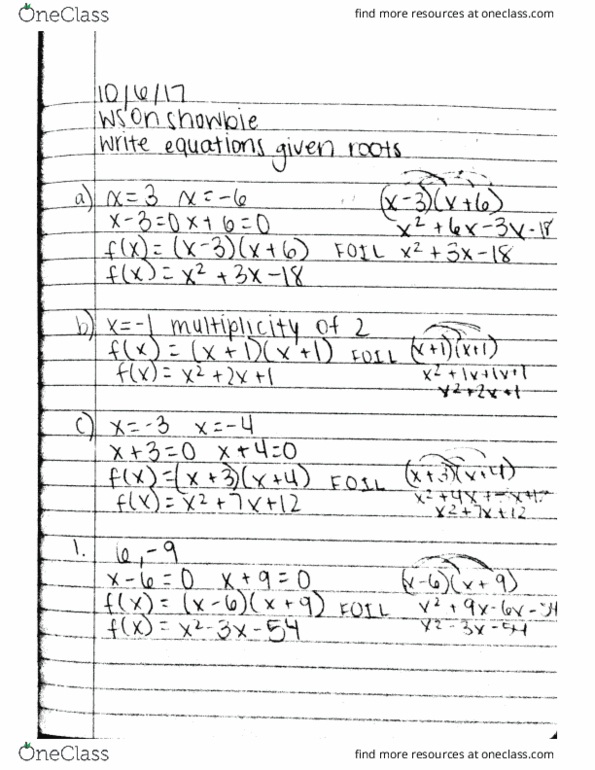 OneClass
find more resources at oneclass.com
10/6/17
WS On showbie
Write equations given roots
a) x=3 x=-6 (x-3)(x+6)
x-3=0 x+6=0 x²+6x-3x-18
f(x)=(x-3)(x+6) FOIL x²+3x-18
f(x)=x²+3x-18
b) x=-1 multiplicity of 2
f(x)=(x+1)(x+1) FOIL (x+1)(x+1)
f(x)=x²+2x+1 x²+1x+1x+1
x²+2x+1
c) x=-3 x=-4
x+3=0 x+4=0
f(x)=(x+3)(x+4) FOIL (x+3)(x+4)
f(x)=x²+7x+12 x²+4x+
x²+7x+12
1. 6,-9
x-6=0 x+9=0 (x-6)(x+9)
f(x)=(x-6)(x+9) FOIL x²+9x-6x-54
f(x)=x²-3x-54 x²-3x-54
OneClass
find more resources at oneclass.com